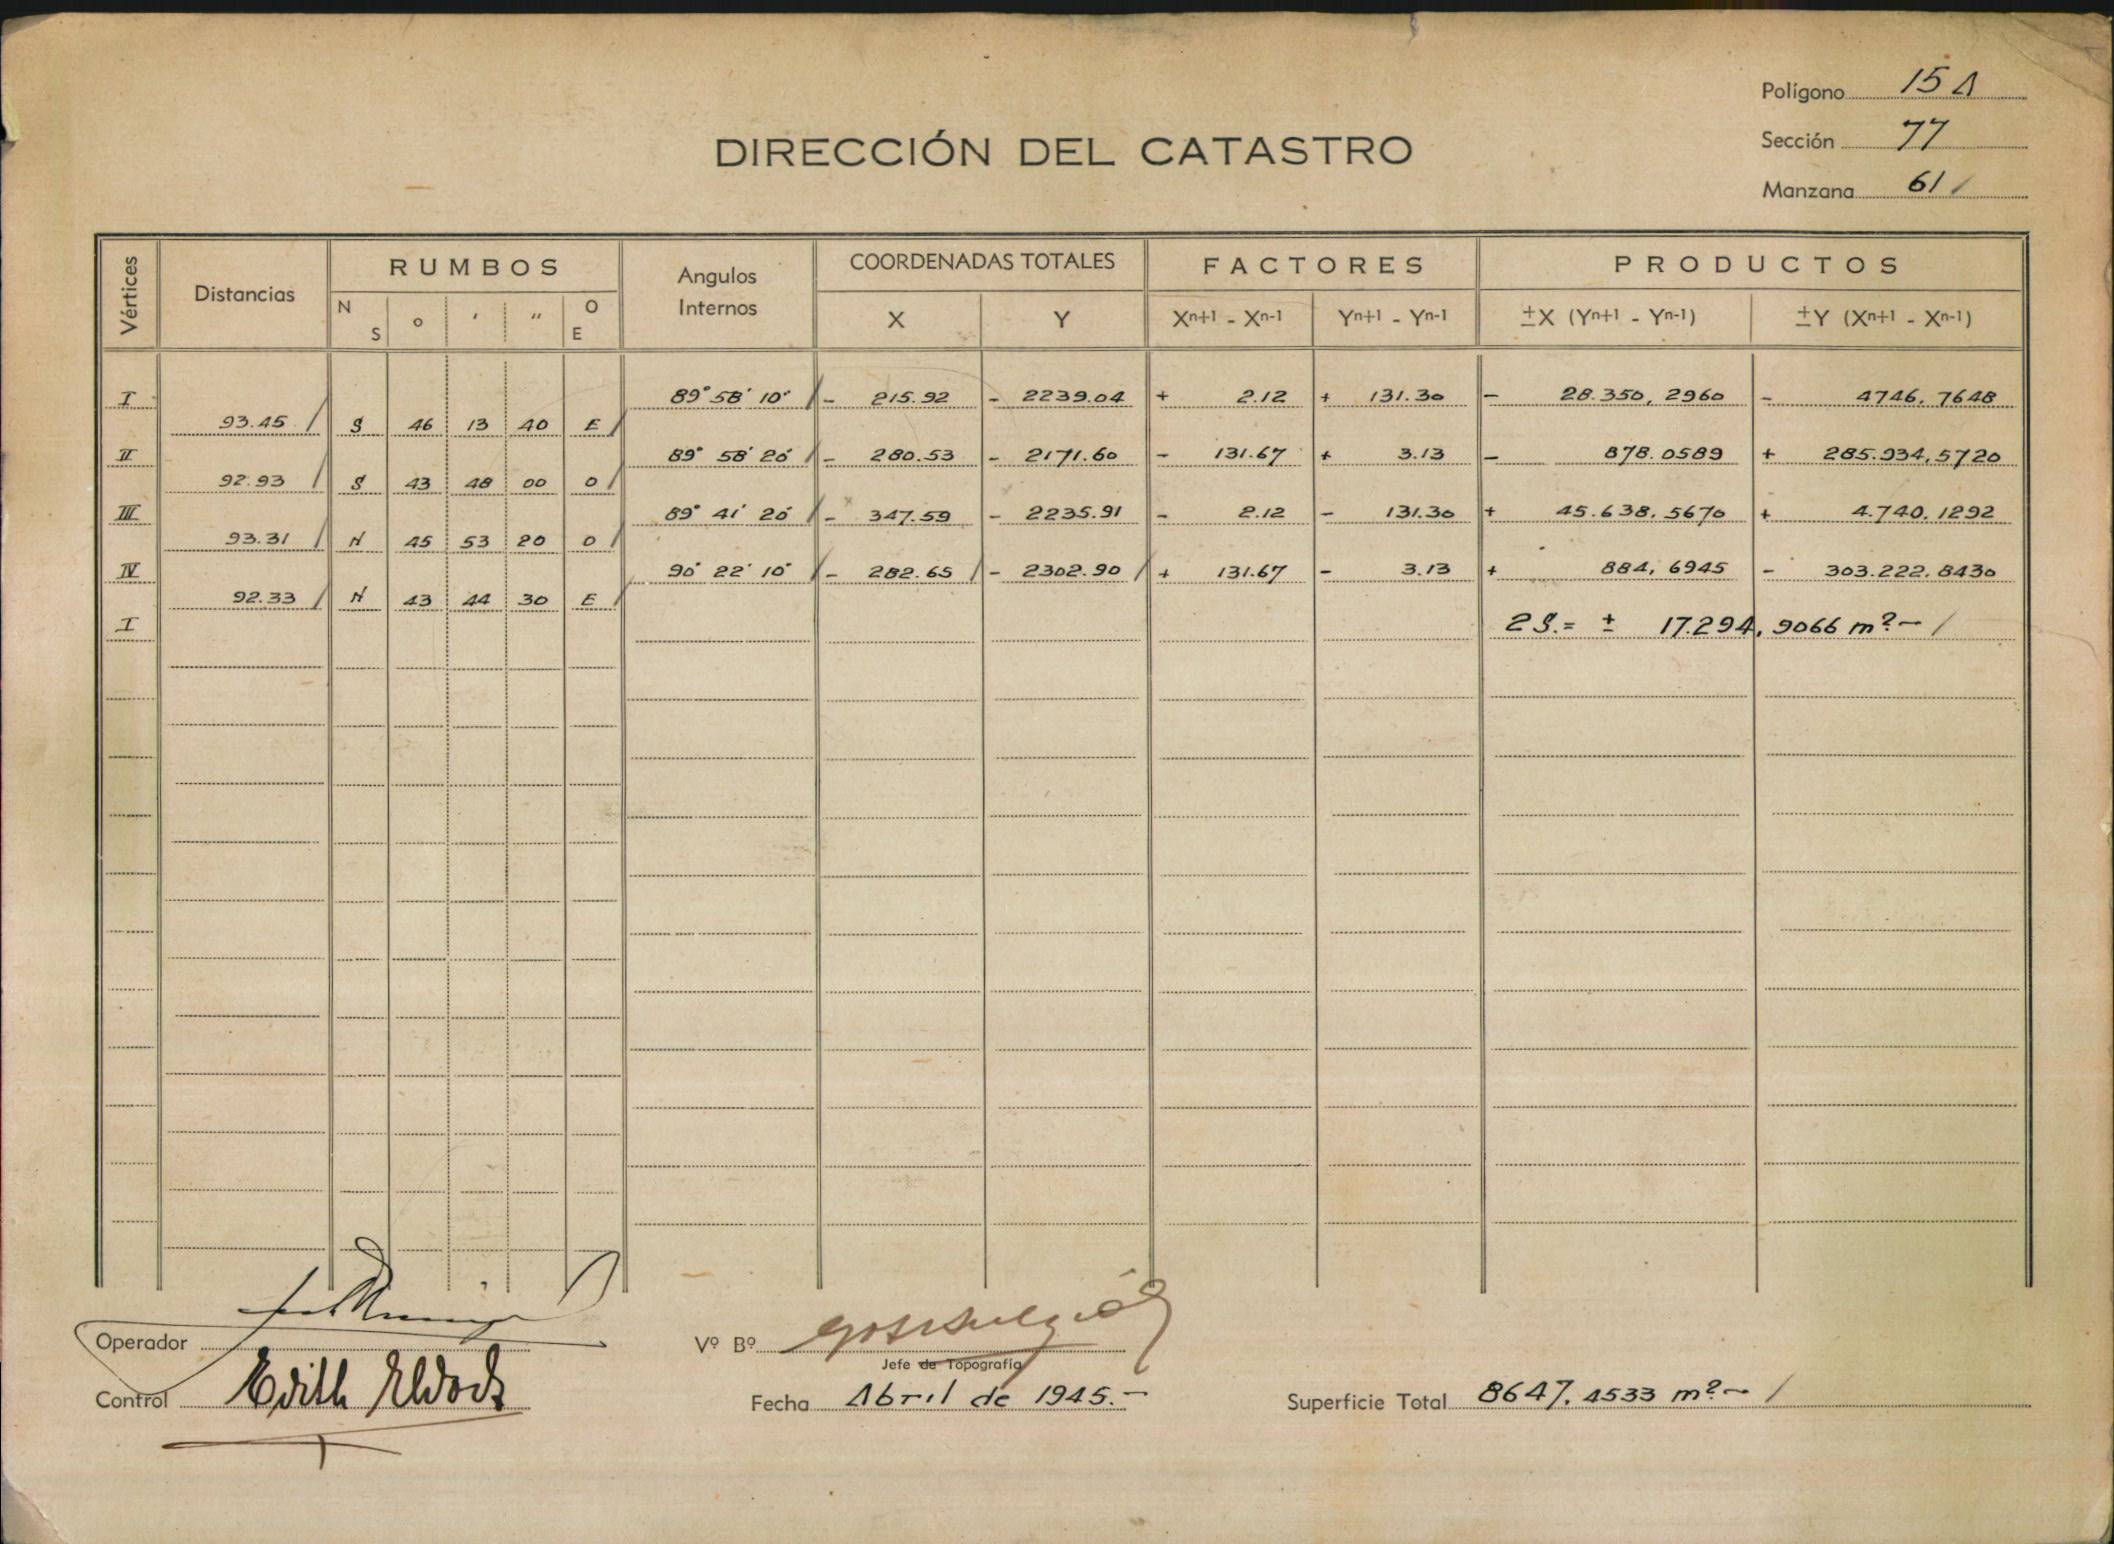 Polígono 15 A
DIRECCIÓN DEL CATASTRO
Sección 77
Manzana 61
Vértices
Distancias
RUMBOS
N S ° ' " O E
Angulos Internos
COORDENADAS TOTALES
X Y
FACTORES
Xn+1 - Xn-1 Yn+1 - Yn-1
PRODUCTOS
±X (Yn+1 - Yn-1) ±Y (Xn+1 - Xn-1)
I 89° 58' 10" - 215.92 - 2239.04 + 2.12 + 131.30 - 28.350,2960 - 4746,7648
93.45 S 46 13 40 E
II 89° 58' 20" - 280.53 - 2171.60 - 131.67 + 3.13 - 878.0589 + 285.934,5720
92.93 S 43 48 00 O
III 89° 41' 20" - 347.59 - 2235.91 - 2.12 - 131.30 + 45.638,5670 + 4.740,1292
93.31 N 45 53 20 O
IV 90° 22' 10" - 282.65 - 2302.90 + 131.67 - 3.13 + 884,6945 - 303.222,8430
92.33 N 43 44 30 E
I 2S.= ± 17.294,9066 m².-
Operador
Vº Bº
Jefe de Topografía
Control Edith
Fecha Abril de 1945.-
Superficie Total 8647,4533 m².-